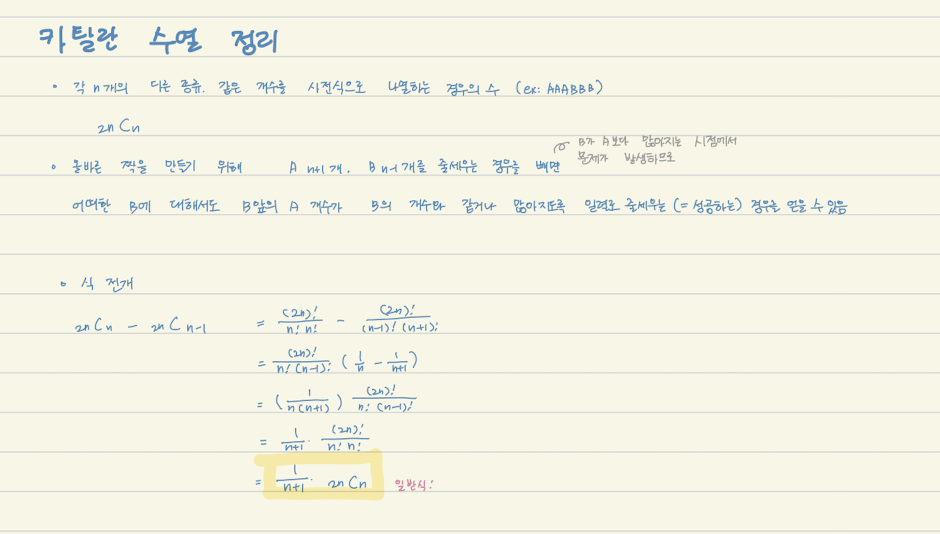 카탈란 수열 정리
• 각 n개의 다른 종류, 같은 개수를 사전식으로 나열하는 경우의 수 (ex: AAABBB)
2nCn
B가 A보다 많아지는 시점에서
문제가 발생하므로
• 올바른 짝을 만들기 위해 A n+1개, B n-1개를 줄세우는 경우를 빼면
어떠한 B에 대해서도 B앞의 A 개수가 B의 개수와 같거나 많아지도록 일렬로 줄세우는 (= 성공하는) 경우를 얻을 수 있음
• 식 전개
2nCn - 2nCn-1 = (2n)!/n! n! - (2n)!/(n-1)! (n+1)!
= (2n)!/n! (n-1)! (1/n - 1/n+1)
= (1/n(n+1)) (2n)!/n! (n-1)!
= 1/n+1 · (2n)!/n! n!
= 1/n+1 · 2nCn 일반식!